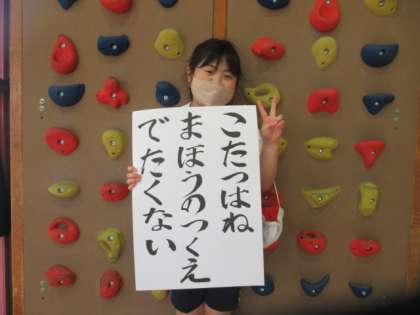 こたつはね
まほうのつくえ
でたくない